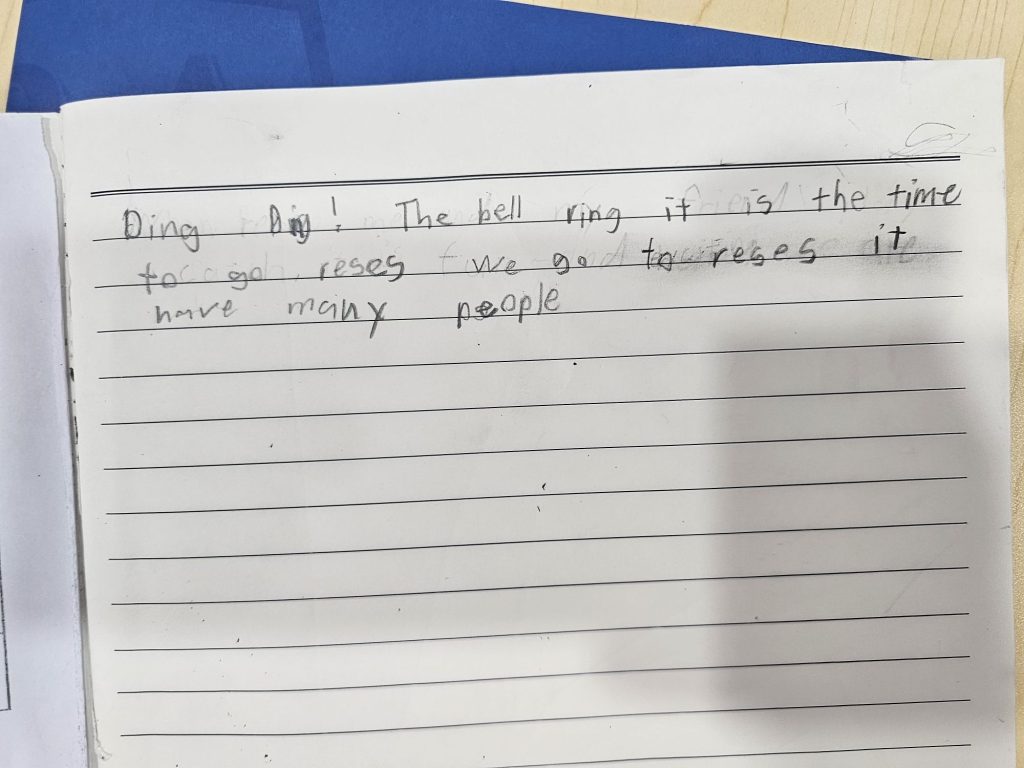 Ding Ding! The bell ring it is the time
to go reses we go to reses it
have many people